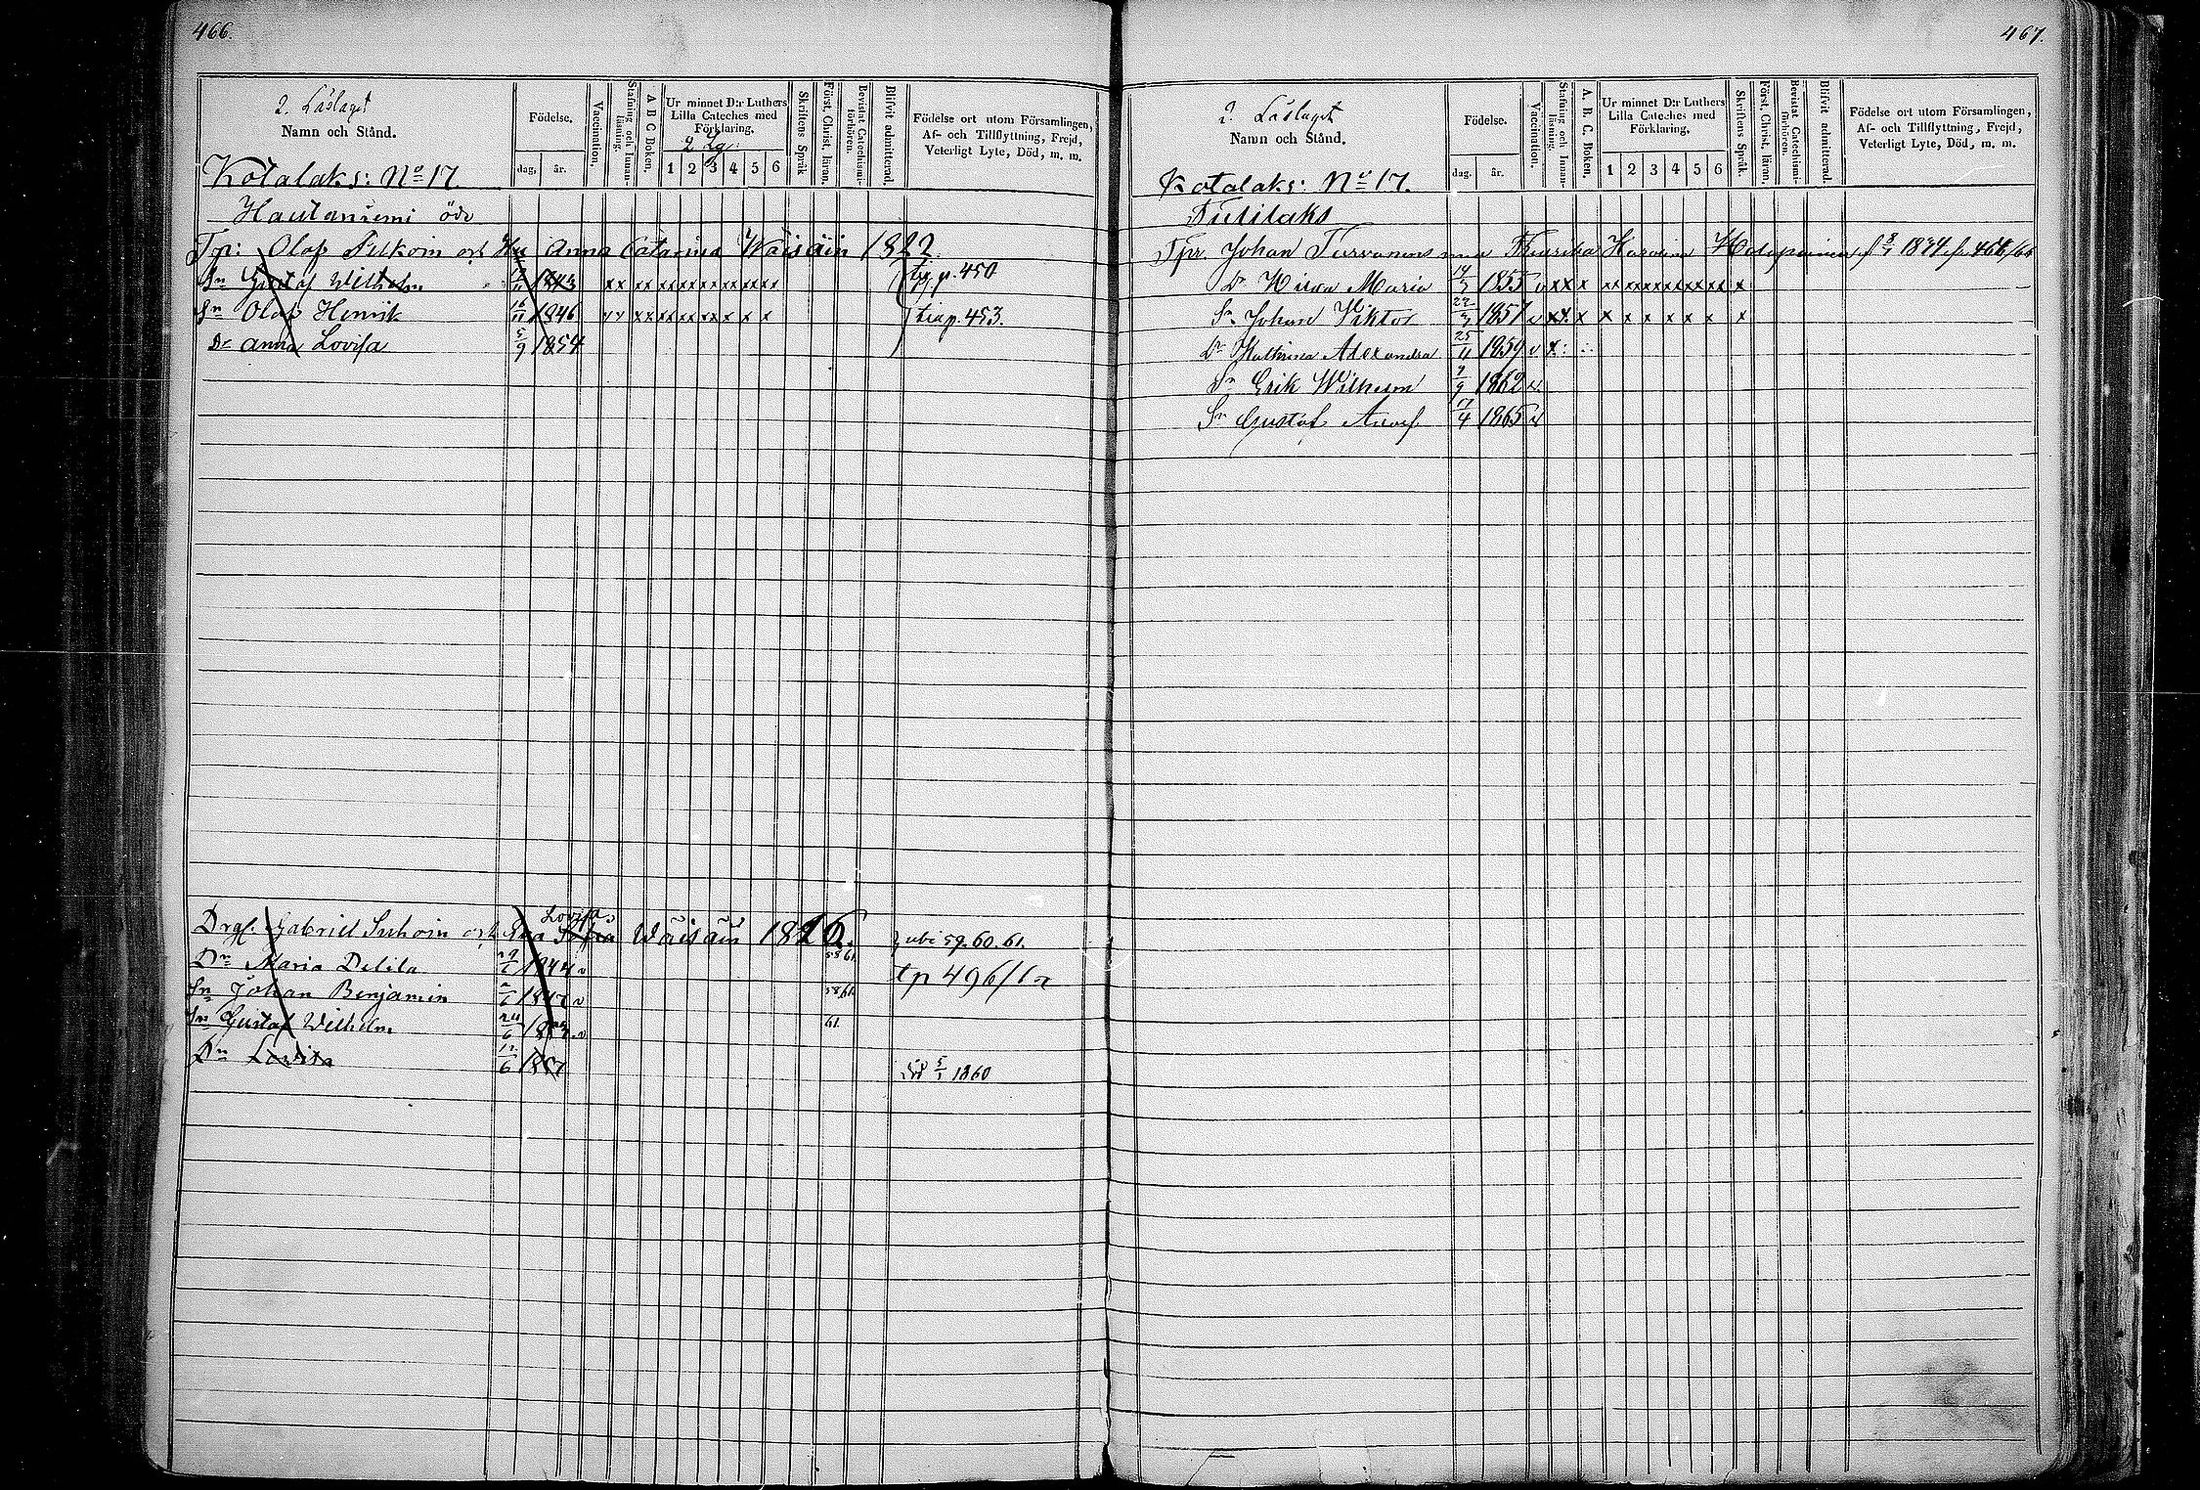 466.
2. Läslaget
Namn och Stånd.
Födelse.
dag, år.
Vaccination.
Stafning och Innan-
läsning.
A B C Boken.
Ur minnet D:r Luthers
Lilla Cateches med
Förklaring.
2 Lg:
1 2 3 4 5 6
Skriftens Språk
Först. Christ. läran.
Bevistat Catechismi-
förhören.
Blifvit admitterad.
Födelse ort utom Församlingen,
Af- och Tillflyttning, Frejd,
Veterligt Lyte, Död, m. m.
Kotalaks: No 17.
Hautaniemi öde
Tpr: Olof Pitkoin och Hu Anna Catarina Wäisäin 1822.
Sn Gustaf Wilhelm 1843 xx xxxxxxxxxxx tp. p. 450
Sn Olof Henrik 16/11 1846 xxxxxxxx x x tia p. 453.
Dr Anna Lovisa 5/9 1854
Drgl. Gabriel Surhoin och Eva Sofia Lovisa Wäisäin 1826. ubi 59. 60. 61.
Dr Maria Delila 1844 v 58 61. tp 496/62
Sn Johan Benjamin 1847 v 58.61.
Sn Gustaf Wilhelm 24/6 v 61.
Dr Lovisa 12/6 1857 död 5/1 1860
467.
2. Läslaget
Namn och Stånd.
Födelse.
dag. år.
Vaccination.
Stafning och Innan-
läsning.
A. B. C. Boken.
Ur minnet D:r Luthers
Lilla Cateches med
Förklaring,
1 2 3 4 5 6
Skriftens Språk.
Först. Christ. läran.
Bevistat Catechismi-
förhören.
Blifvit admitterad.
Födelse ort utom Församlingen,
Af- och Tillflyttning, Frejd,
Veterligt Lyte, Död, m. m.
Kotalaks: No 17.
Tutilaks
Tpr. Johan Turvanens Holopainen f. 1834 fr. 464/66
Dr Maria 14/3 1855 v xxx x xxxxxxxxxxx x
Sn Johan Viktor 22/3 1857 v xx x x x x x x x x
Dr Kathrina Alexandra 25/11 1859 v x
Sn Erik Wilhelm 7/9 1862 v
Sn Gustaf Adolf 17/4 1865 v